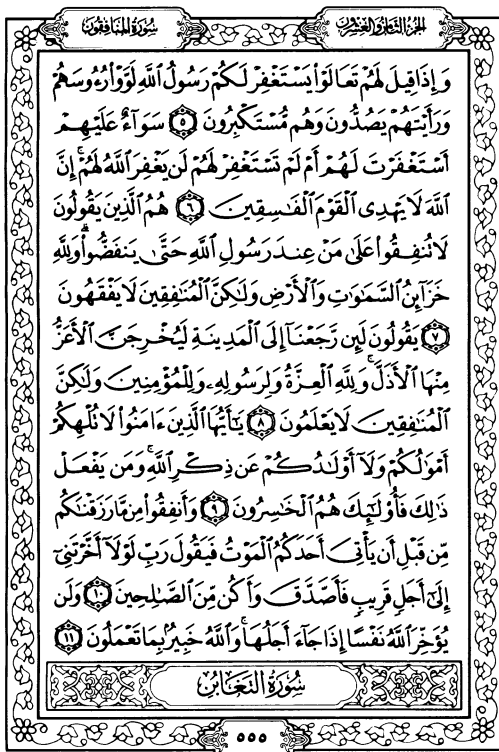 سُورَةُ المنَافِقُون
الجُزءُ الثَّامِنُ وَالعِشْرُون
وَإِذَا قِيلَ لَهُمْ تَعَالَوْا۟ يَسْتَغْفِرْ لَكُمْ رَسُولُ ٱللَّهِ لَوَّوْا۟ رُءُوسَهُمْ
وَرَأَيْتَهُمْ يَصُدُّونَ وَهُم مُّسْتَكْبِرُونَ ٥ سَوَآءٌ عَلَيْهِمْ
أَسْتَغْفَرْتَ لَهُمْ أَمْ لَمْ تَسْتَغْفِرْ لَهُمْ لَن يَغْفِرَ ٱللَّهُ لَهُمْ ۚ إِنَّ
ٱللَّهَ لَا يَهْدِى ٱلْقَوْمَ ٱلْفَٰسِقِينَ ٦ هُمُ ٱلَّذِينَ يَقُولُونَ
لَا تُنفِقُوا۟ عَلَىٰ مَنْ عِندَ رَسُولِ ٱللَّهِ حَتَّىٰ يَنفَضُّوا۟ ۗ وَلِلَّهِ
خَزَآئِنُ ٱلسَّمَٰوَٰتِ وَٱلْأَرْضِ وَلَٰكِنَّ ٱلْمُنَٰفِقِينَ لَا يَفْقَهُونَ
٧ يَقُولُونَ لَئِن رَّجَعْنَآ إِلَى ٱلْمَدِينَةِ لَيُخْرِجَنَّ ٱلْأَعَزُّ
مِنْهَا ٱلْأَذَلَّ ۚ وَلِلَّهِ ٱلْعِزَّةُ وَلِرَسُولِهِۦ وَلِلْمُؤْمِنِينَ وَلَٰكِنَّ
ٱلْمُنَٰفِقِينَ لَا يَعْلَمُونَ ٨ يَٰٓأَيُّهَا ٱلَّذِينَ ءَامَنُوا۟ لَا تُلْهِكُمْ
أَمْوَٰلُكُمْ وَلَآ أَوْلَٰدُكُمْ عَن ذِكْرِ ٱللَّهِ ۚ وَمَن يَفْعَلْ
ذَٰلِكَ فَأُو۟لَٰٓئِكَ هُمُ ٱلْخَٰسِرُونَ ٩ وَأَنفِقُوا۟ مِن مَّا رَزَقْنَٰكُم
مِّن قَبْلِ أَن يَأْتِىَ أَحَدَكُمُ ٱلْمَوْتُ فَيَقُولَ رَبِّ لَوْلَآ أَخَّرْتَنِىٓ
إِلَىٰٓ أَجَلٍ قَرِيبٍ فَأَصَّدَّقَ وَأَكُن مِّنَ ٱلصَّٰلِحِينَ ١٠ وَلَن
يُؤَخِّرَ ٱللَّهُ نَفْسًا إِذَا جَآءَ أَجَلُهَا ۚ وَٱللَّهُ خَبِيرٌۢ بِمَا تَعْمَلُونَ ١١
سُورَةُ التَّغَابُنِ
٥٥٥